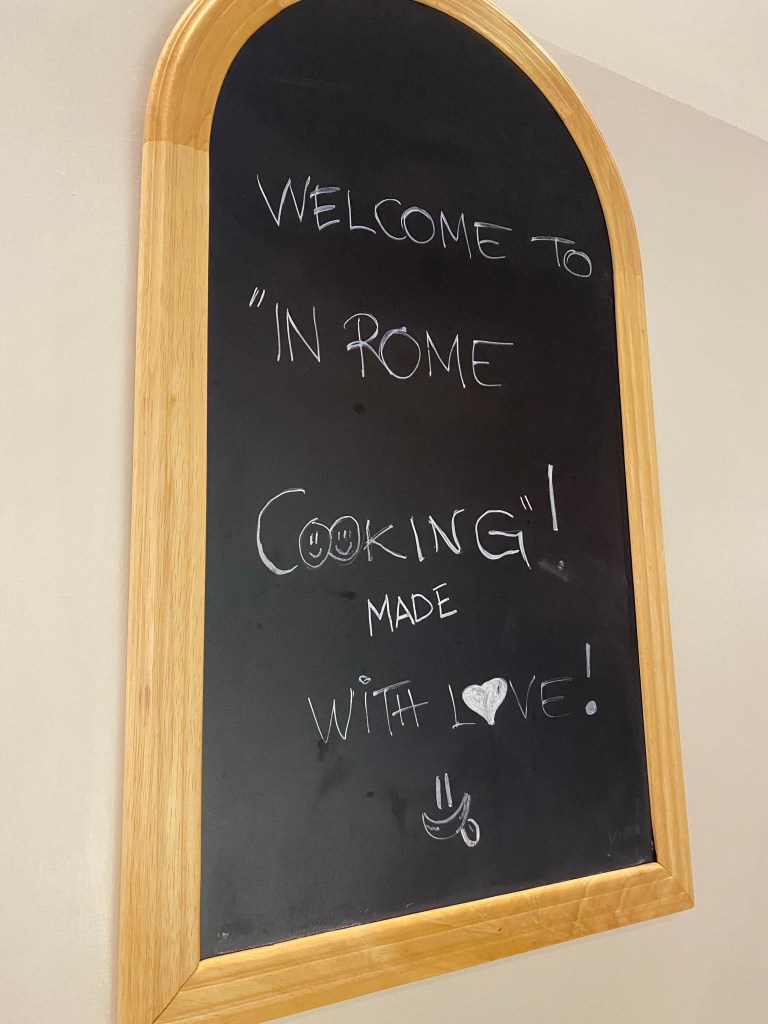 WELCOME TO
"IN ROME
COOKING"!
MADE
WiTH LOVE!